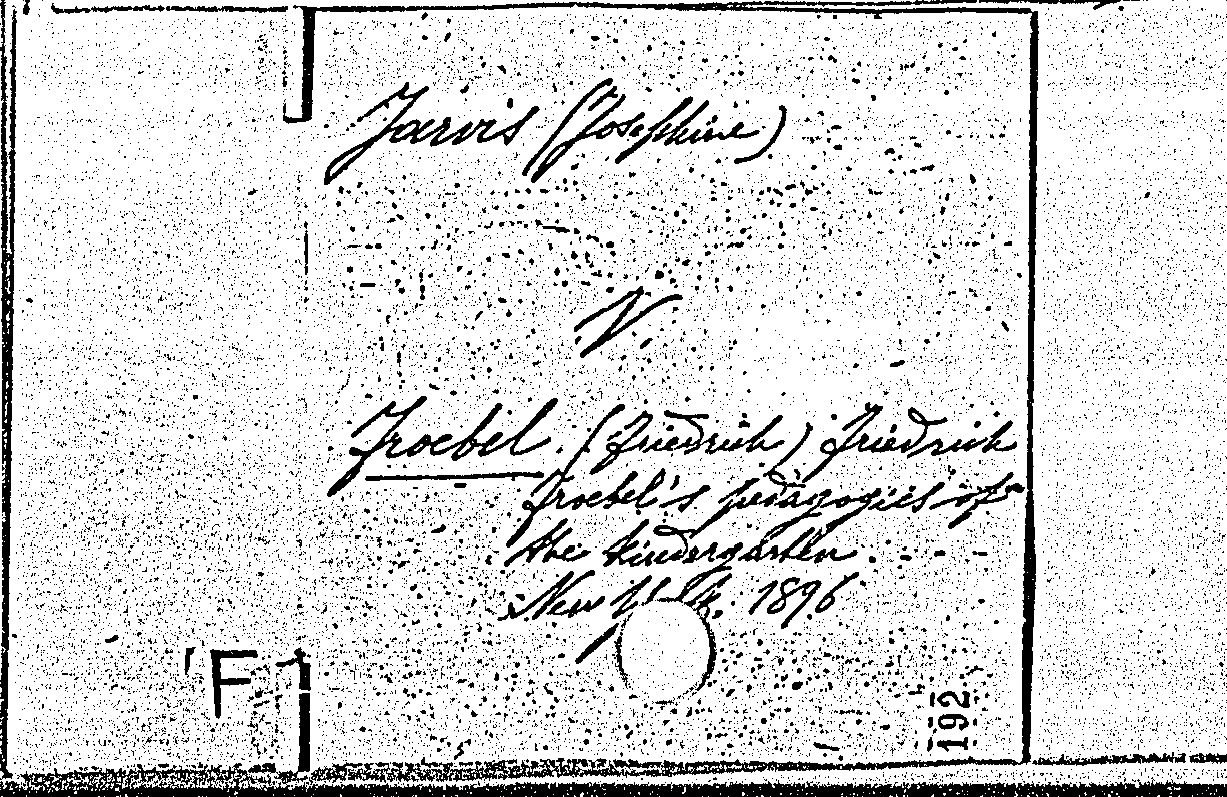 Jarvis (Josephine)
V.
Froebel. (Friedrich) Friedrich
Froebel's pedagogics of
the kindergarten. - - -
New York. 1896
F 1
192